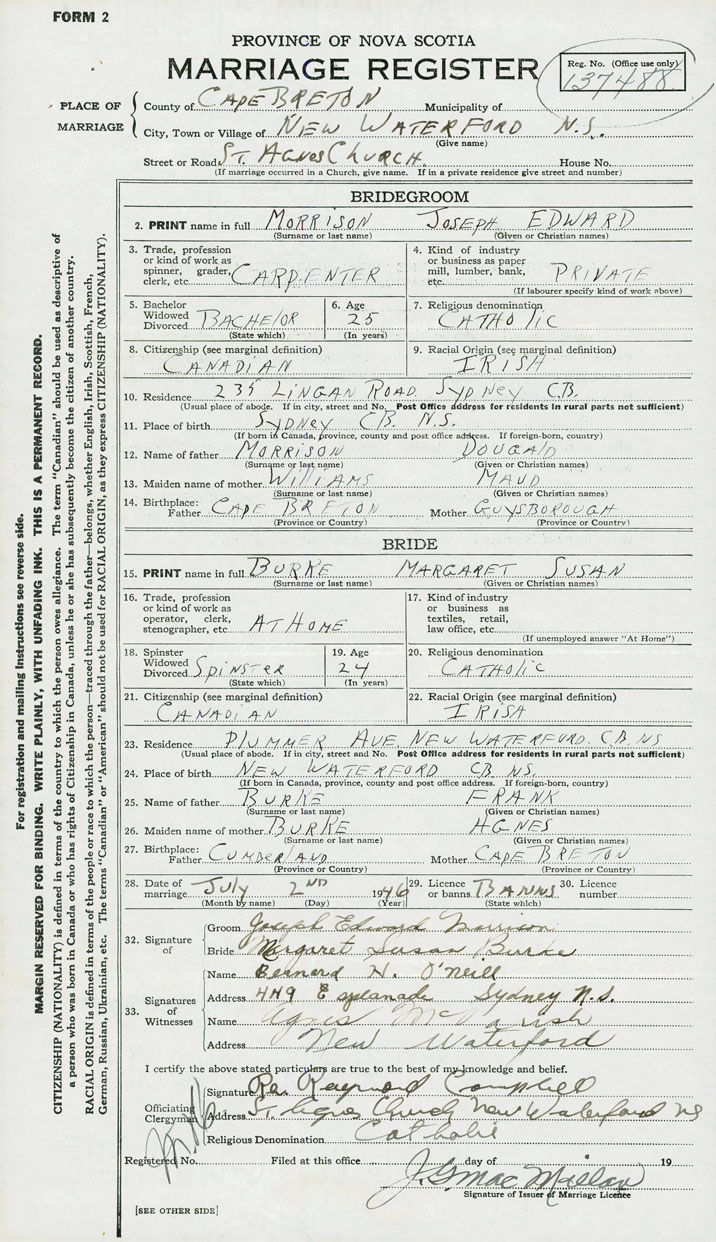 FORM 2
PROVINCE OF NOVA SCOTIA
MARRIAGE REGISTER
Reg. No. (Office use only)
137488
PLACE OF MARRIAGE
County of CAPE BRETON Municipality of
City, Town or Village of NEW WATERFORD N.S.
(Give name)
Street or Road ST. AGNES CHURCH. House No.
(If marriage occurred in a Church, give name. If in a private residence give street and number)
BRIDEGROOM
2. PRINT name in full MORRISON JOSEPH EDWARD
(Surname or last name) (Given or Christian names)
3. Trade, profession or kind of work as spinner, grader, clerk, etc. CARPENTER
4. Kind of industry or business as paper mill, lumber, bank, etc. PRIVATE
(If labourer specify kind of work above)
5. Bachelor Widowed Divorced BACHELOR
(State which)
6. Age 25
(In years)
7. Religious denomination CATHOLIC
8. Citizenship (see marginal definition) CANADIAN
9. Racial Origin (see marginal definition) IRISH
10. Residence 235 LINGAN ROAD. SYDNEY C.B.
(Usual place of abode. If in city, street and No. Post Office address for residents in rural parts not sufficient)
11. Place of birth SYDNEY C.B. N.S.
(If born in Canada, province, county and post office address. If foreign-born, country)
12. Name of father MORRISON DOUGALD
(Surname or last name) (Given or Christian names)
13. Maiden name of mother WILLIAMS MAUD
(Surname or last name) (Given or Christian names)
14. Birthplace: Father CAPE BRETON Mother GUYSBOROUGH
(Province or Country) (Province or Country)
BRIDE
15. PRINT name in full BURKE MARGARET SUSAN
(Surname or last name) (Given or Christian names)
16. Trade, profession or kind of work as operator, clerk, stenographer, etc. AT HOME
17. Kind of industry or business as textiles, retail, law office, etc.
(If unemployed answer "At Home")
18. Spinster Widowed Divorced SPINSTER
(State which)
19. Age 24
(In years)
20. Religious denomination CATHOLIC
21. Citizenship (see marginal definition) CANADIAN
22. Racial Origin (see marginal definition) IRISH
23. Residence PLUMMER AVE. NEW WATERFORD. C.B. NS
(Usual place of abode. If in city, street and No. Post Office address for residents in rural parts not sufficient)
24. Place of birth NEW WATERFORD CB. NS.
(If born in Canada, province, county and post office address. If foreign-born, country)
25. Name of father BURKE FRANK
(Surname or last name) (Given or Christian names)
26. Maiden name of mother BURKE AGNES
(Surname or last name) (Given or Christian names)
27. Birthplace: Father CUMBERLAND Mother CAPE BRETON
(Province or Country) (Province or Country)
28. Date of marriage July 2ND 1946
(Month by name) (Day) (Year)
29. Licence or banns BANNS
(State which)
30. Licence number
32. Signature of
Groom Joseph Edward Morrison
Bride Margaret Susan Burke
33. Signatures of Witnesses
Name Bernard N. O'neill
Address 449 Esplanade Sydney N.S.
Name Agnes
Address New Waterford
I certify the above stated particulars are true to the best of my knowledge and belief.
Officiating Clergyman
Signature Rev. Raymond Campbell
Address St. Agnes Church New Waterford NS
Religious Denomination Catholic
Registered No. Filed at this office day of 19
J. G. MacMillan
Signature of Issuer of Marriage Licence
[SEE OTHER SIDE]
For registration and mailing instructions see reverse side.
MARGIN RESERVED FOR BINDING. WRITE PLAINLY, WITH UNFADING INK. THIS IS A PERMANENT RECORD.
CITIZENSHIP (NATIONALITY) is defined in terms of the country to which the person owes allegiance. The term "Canadian" should be used as descriptive of
a person who was born in Canada or who has rights of Citizenship in Canada, unless he or she has subsequently become the citizen of another country.
RACIAL ORIGIN is defined in terms of the people or race to which the person—traced through the father—belongs, whether English, Irish, Scottish, French,
German, Russian, Ukrainian, etc. The terms "Canadian" or "American" should not be used for RACIAL ORIGIN, as they express CITIZENSHIP (NATIONALITY).